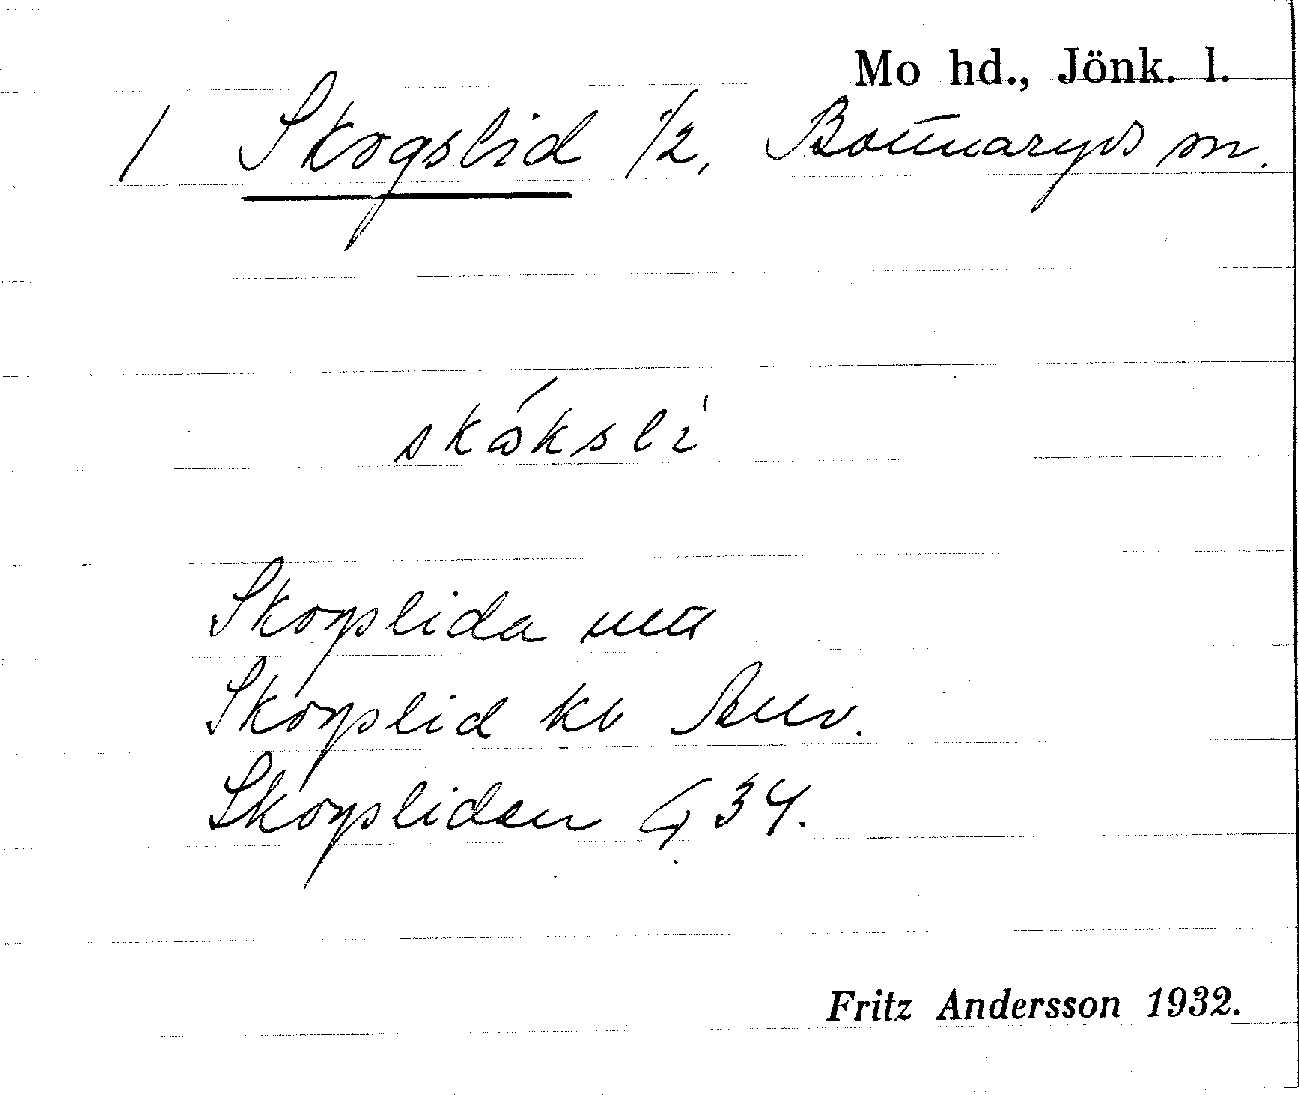 Mo hd., Jönk. l.
/ Skogslid 1/2, Bottnaryds sn.
skɷ́ksli
Skogslida
Skogslid kb
Skogsliden G 34.
Fritz Andersson 1932.